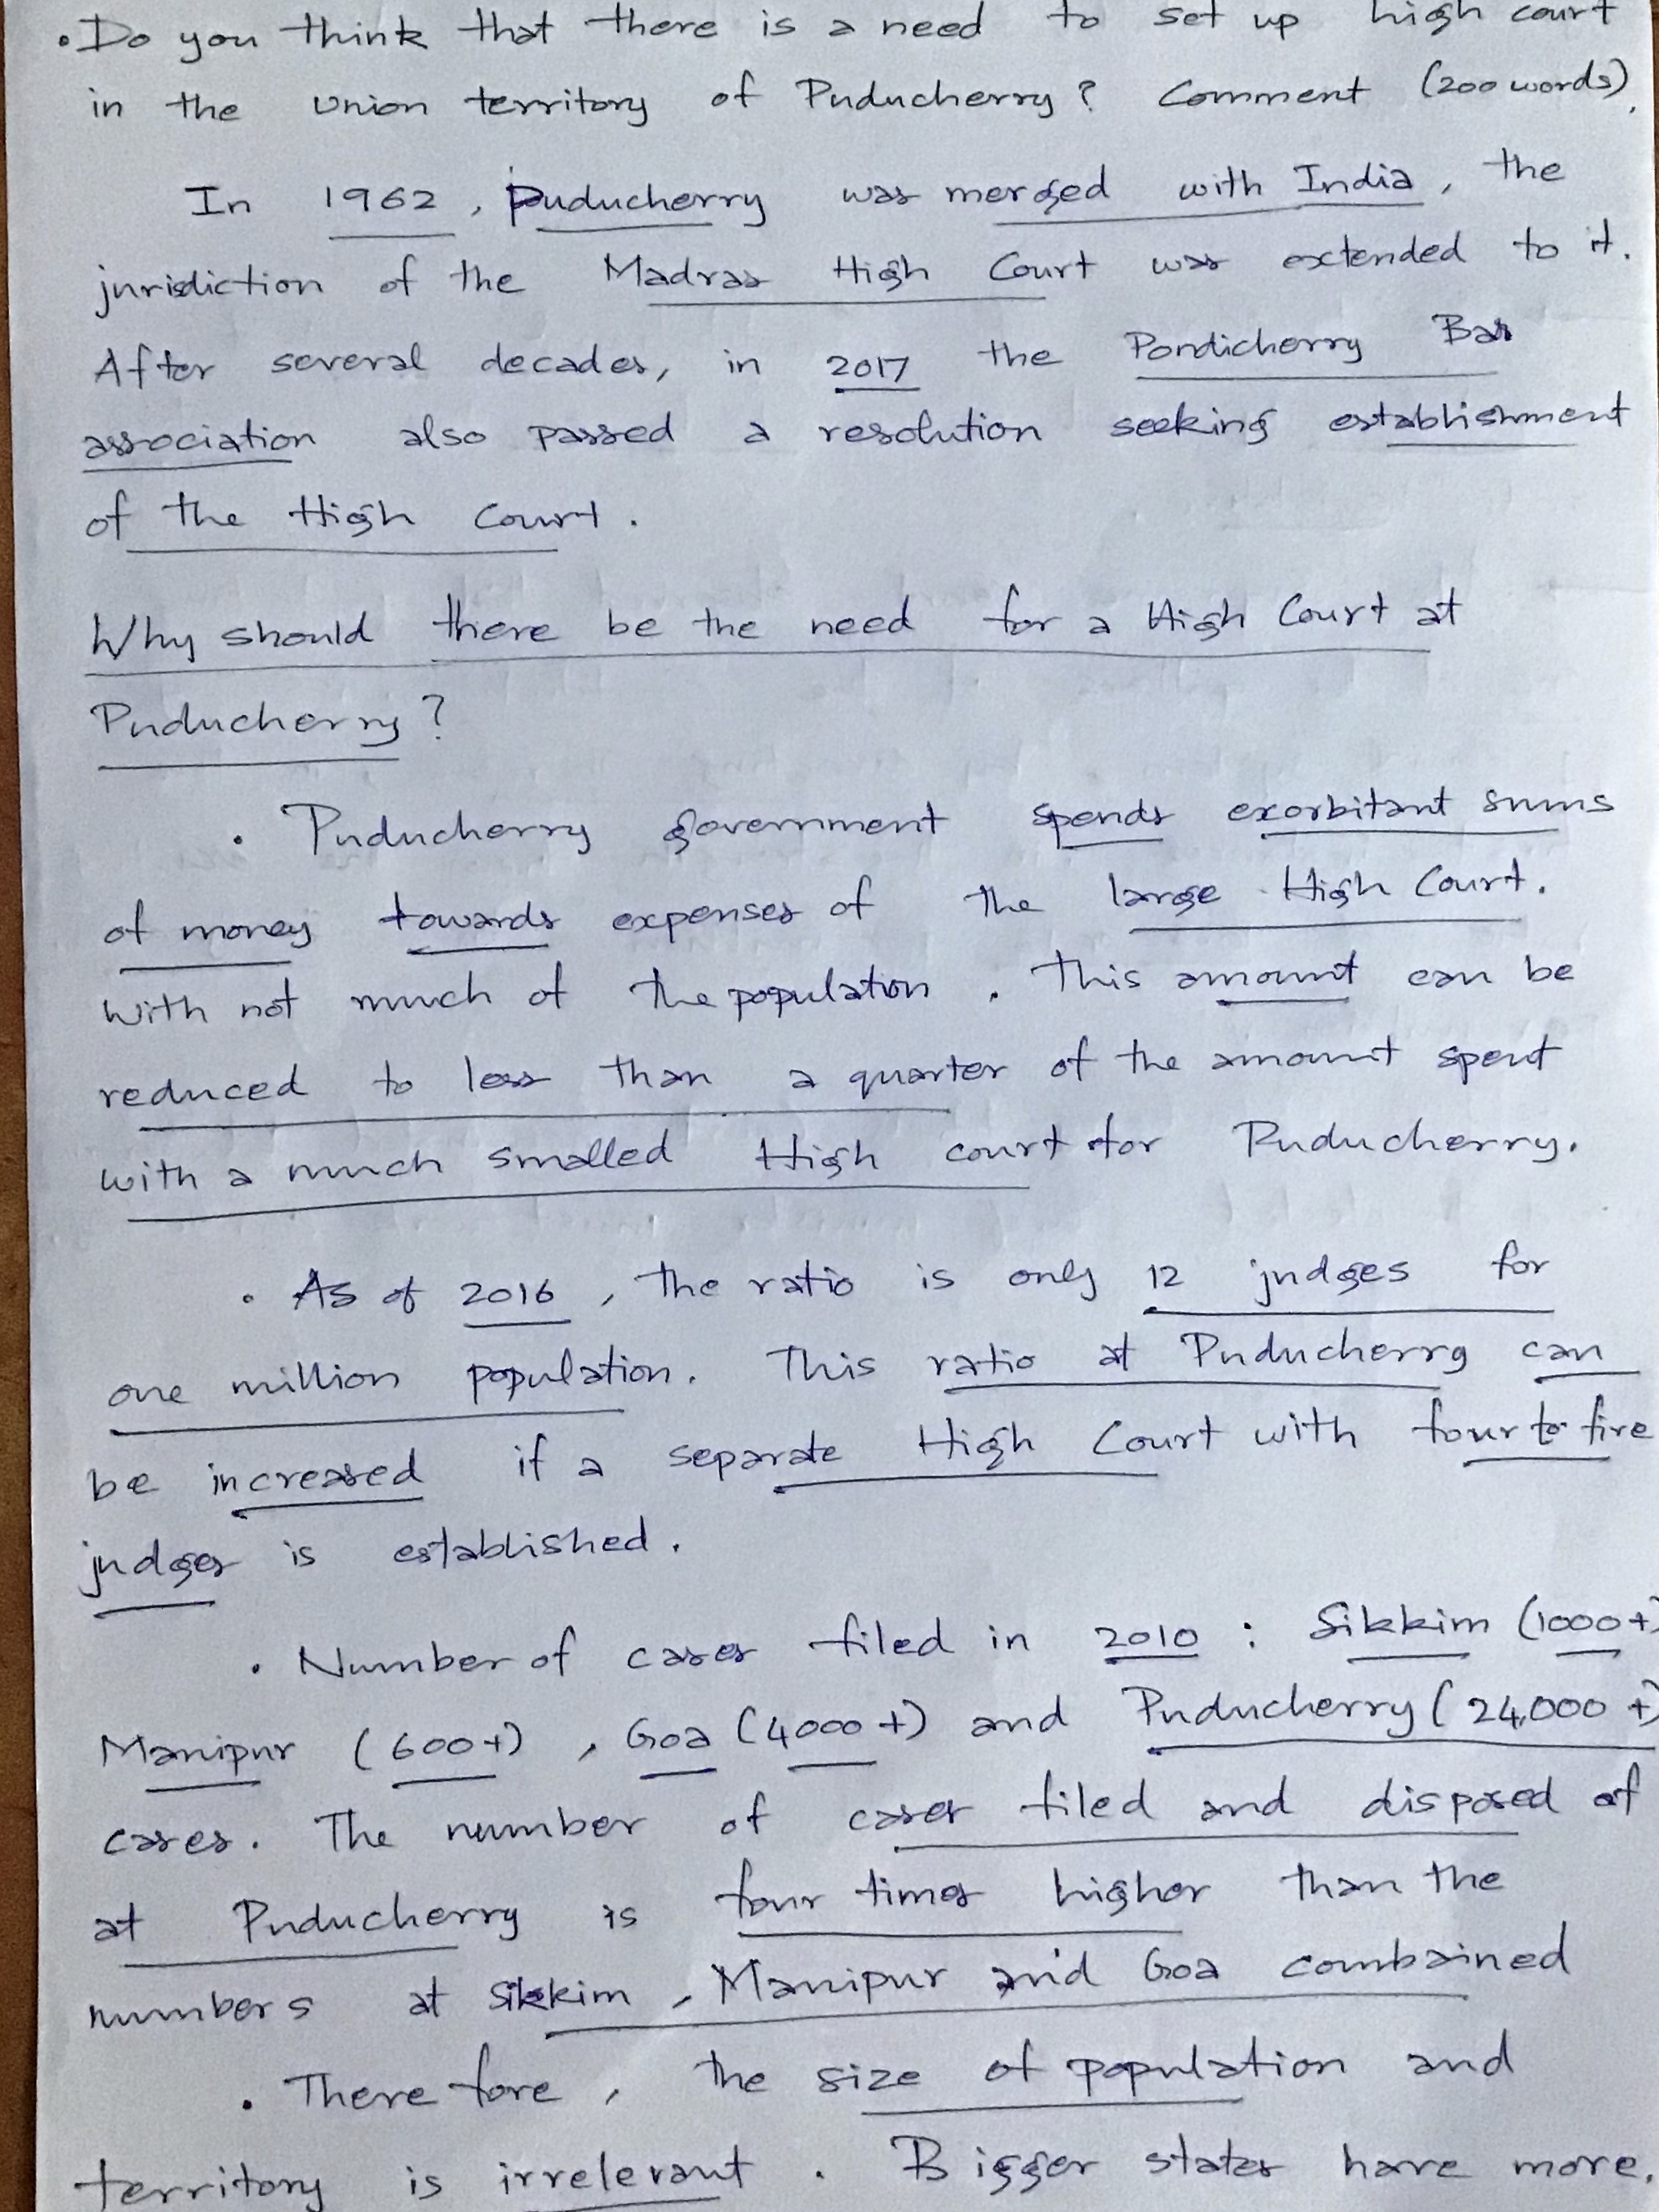 • Do you think that there is a need to set up high court
in the union territory of Puducherry? Comment (200 words).
In 1962, Puducherry was merged with India, the
jurisdiction of the Madras High Court was extended to it.
After several decades, in 2017 the Pondicherry Bar
association also passed a resolution seeking establishment
of the High Court.
Why should there be the need for a High Court at
Puducherry?
• Puducherry government spends exorbitant sums
of money towards expenses of the large High Court.
With not much of the population. This amount can be
reduced to less than a quarter of the amount spent
with a much smalled High court for Puducherry.
• As of 2016, the ratio is only 12 judges for
one million population. This ratio at Puducherry can
be increased if a separate High Court with four to five
judges is established.
• Number of cases filed in 2010 : Sikkim (1000+)
Manipur (600+), Goa (4000+) and Puducherry (24,000+)
cases. The number of cases filed and disposed of
at Puducherry is four times higher than the
numbers at Sikkim, Manipur and Goa combained
• Therefore, the size of population and
territory is irrelevant. Bigger states have more.